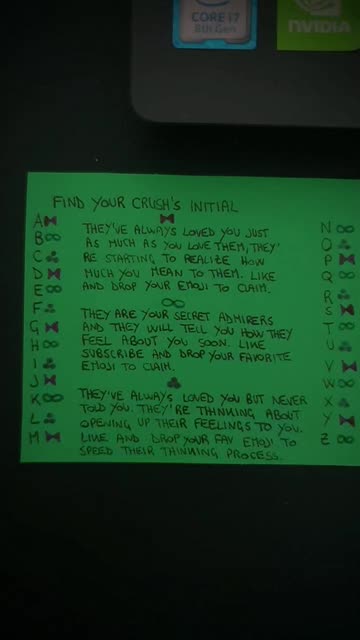 CORE i7
8th Gen
NVIDIA
FIND YOUR CRUSH'S INITIAL
A
B
C
D
E
F
G
H
I
J
K
L
M
THEY'VE ALWAYS LOVED YOU JUST
AS MUCH AS YOU LOVE THEM, THEY'
RE STARTING TO REALIZE HOW
MUCH YOU MEAN TO THEM. LIKE
AND DROP YOUR EMOJI TO CLAIM.
∞
THEY ARE YOUR SECRET ADMIRERS
AND THEY WILL TELL YOU HOW THEY
FEEL ABOUT YOU SOON. LIKE
SUBSCRIBE AND DROP YOUR FAVORITE
EMOJI TO CLAIM.
THEY'VE ALWAYS LOVED YOU BUT NEVER
TOLD YOU. THEY'RE THINKING ABOUT
OPENING UP THEIR FEELINGS TO YOU.
LIKE AND DROP YOUR FAV EMOJI TO
SPEED THEIR THINKING PROCESS.
N ∞
O
P
Q ∞
R
S
T ∞
U
V
W ∞
X
Y
Z ∞